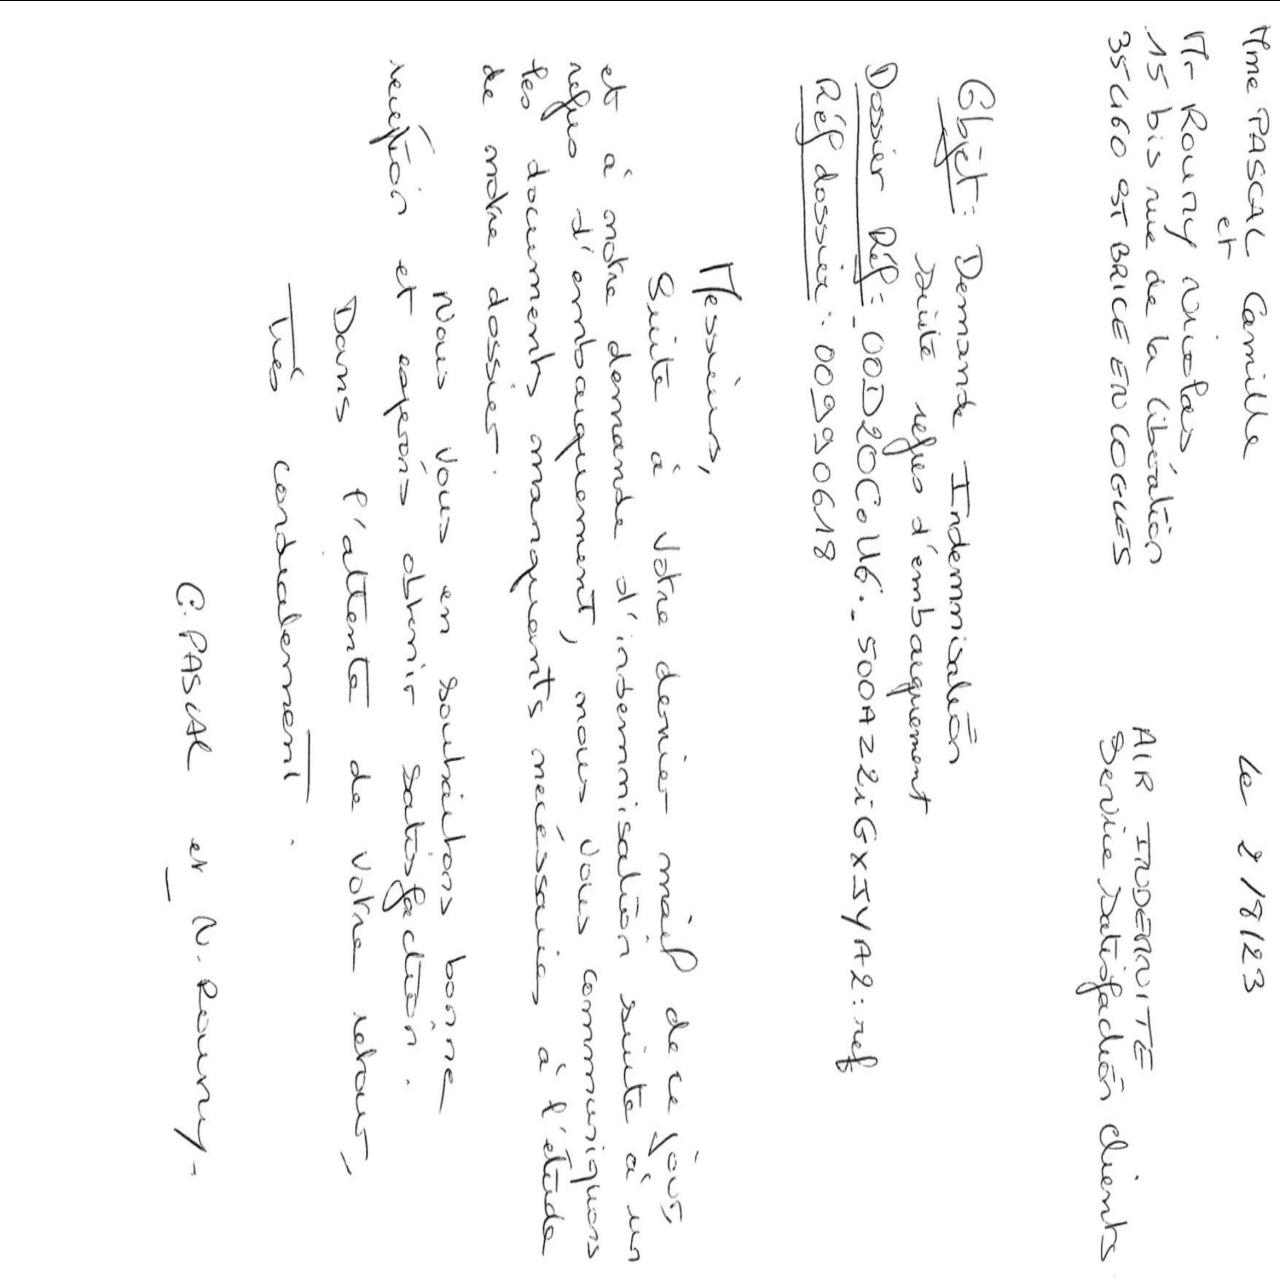 Mme PASCAL Camille
et
Mr Rouny Nicolas
15 bis rue de la libération
35460 ST BRICE EN COGLES
Le 2/8/23
AIR INDEMNITE
Service Satisfaction clients
Objet : Demande Indemnisation
suite refus d'embarquement
Dossier Réf : _00D20CoUG._500AZ2iGXJYA2:ref
Réf dossier : 00990618
Messieurs,
Suite à votre dernier mail de ce jour,
et à notre demande d'indemnisation suite à un
refus d'embarquement, nous vous communiquons
les documents manquants nécéssaires à l'étude
de notre dossier.
Nous vous en souhaitons bonne
reception et esperons obtenir satisfaction.
Dans l'attente de votre retour,
Très cordialement.
C. PASCAL et N. Rouny.